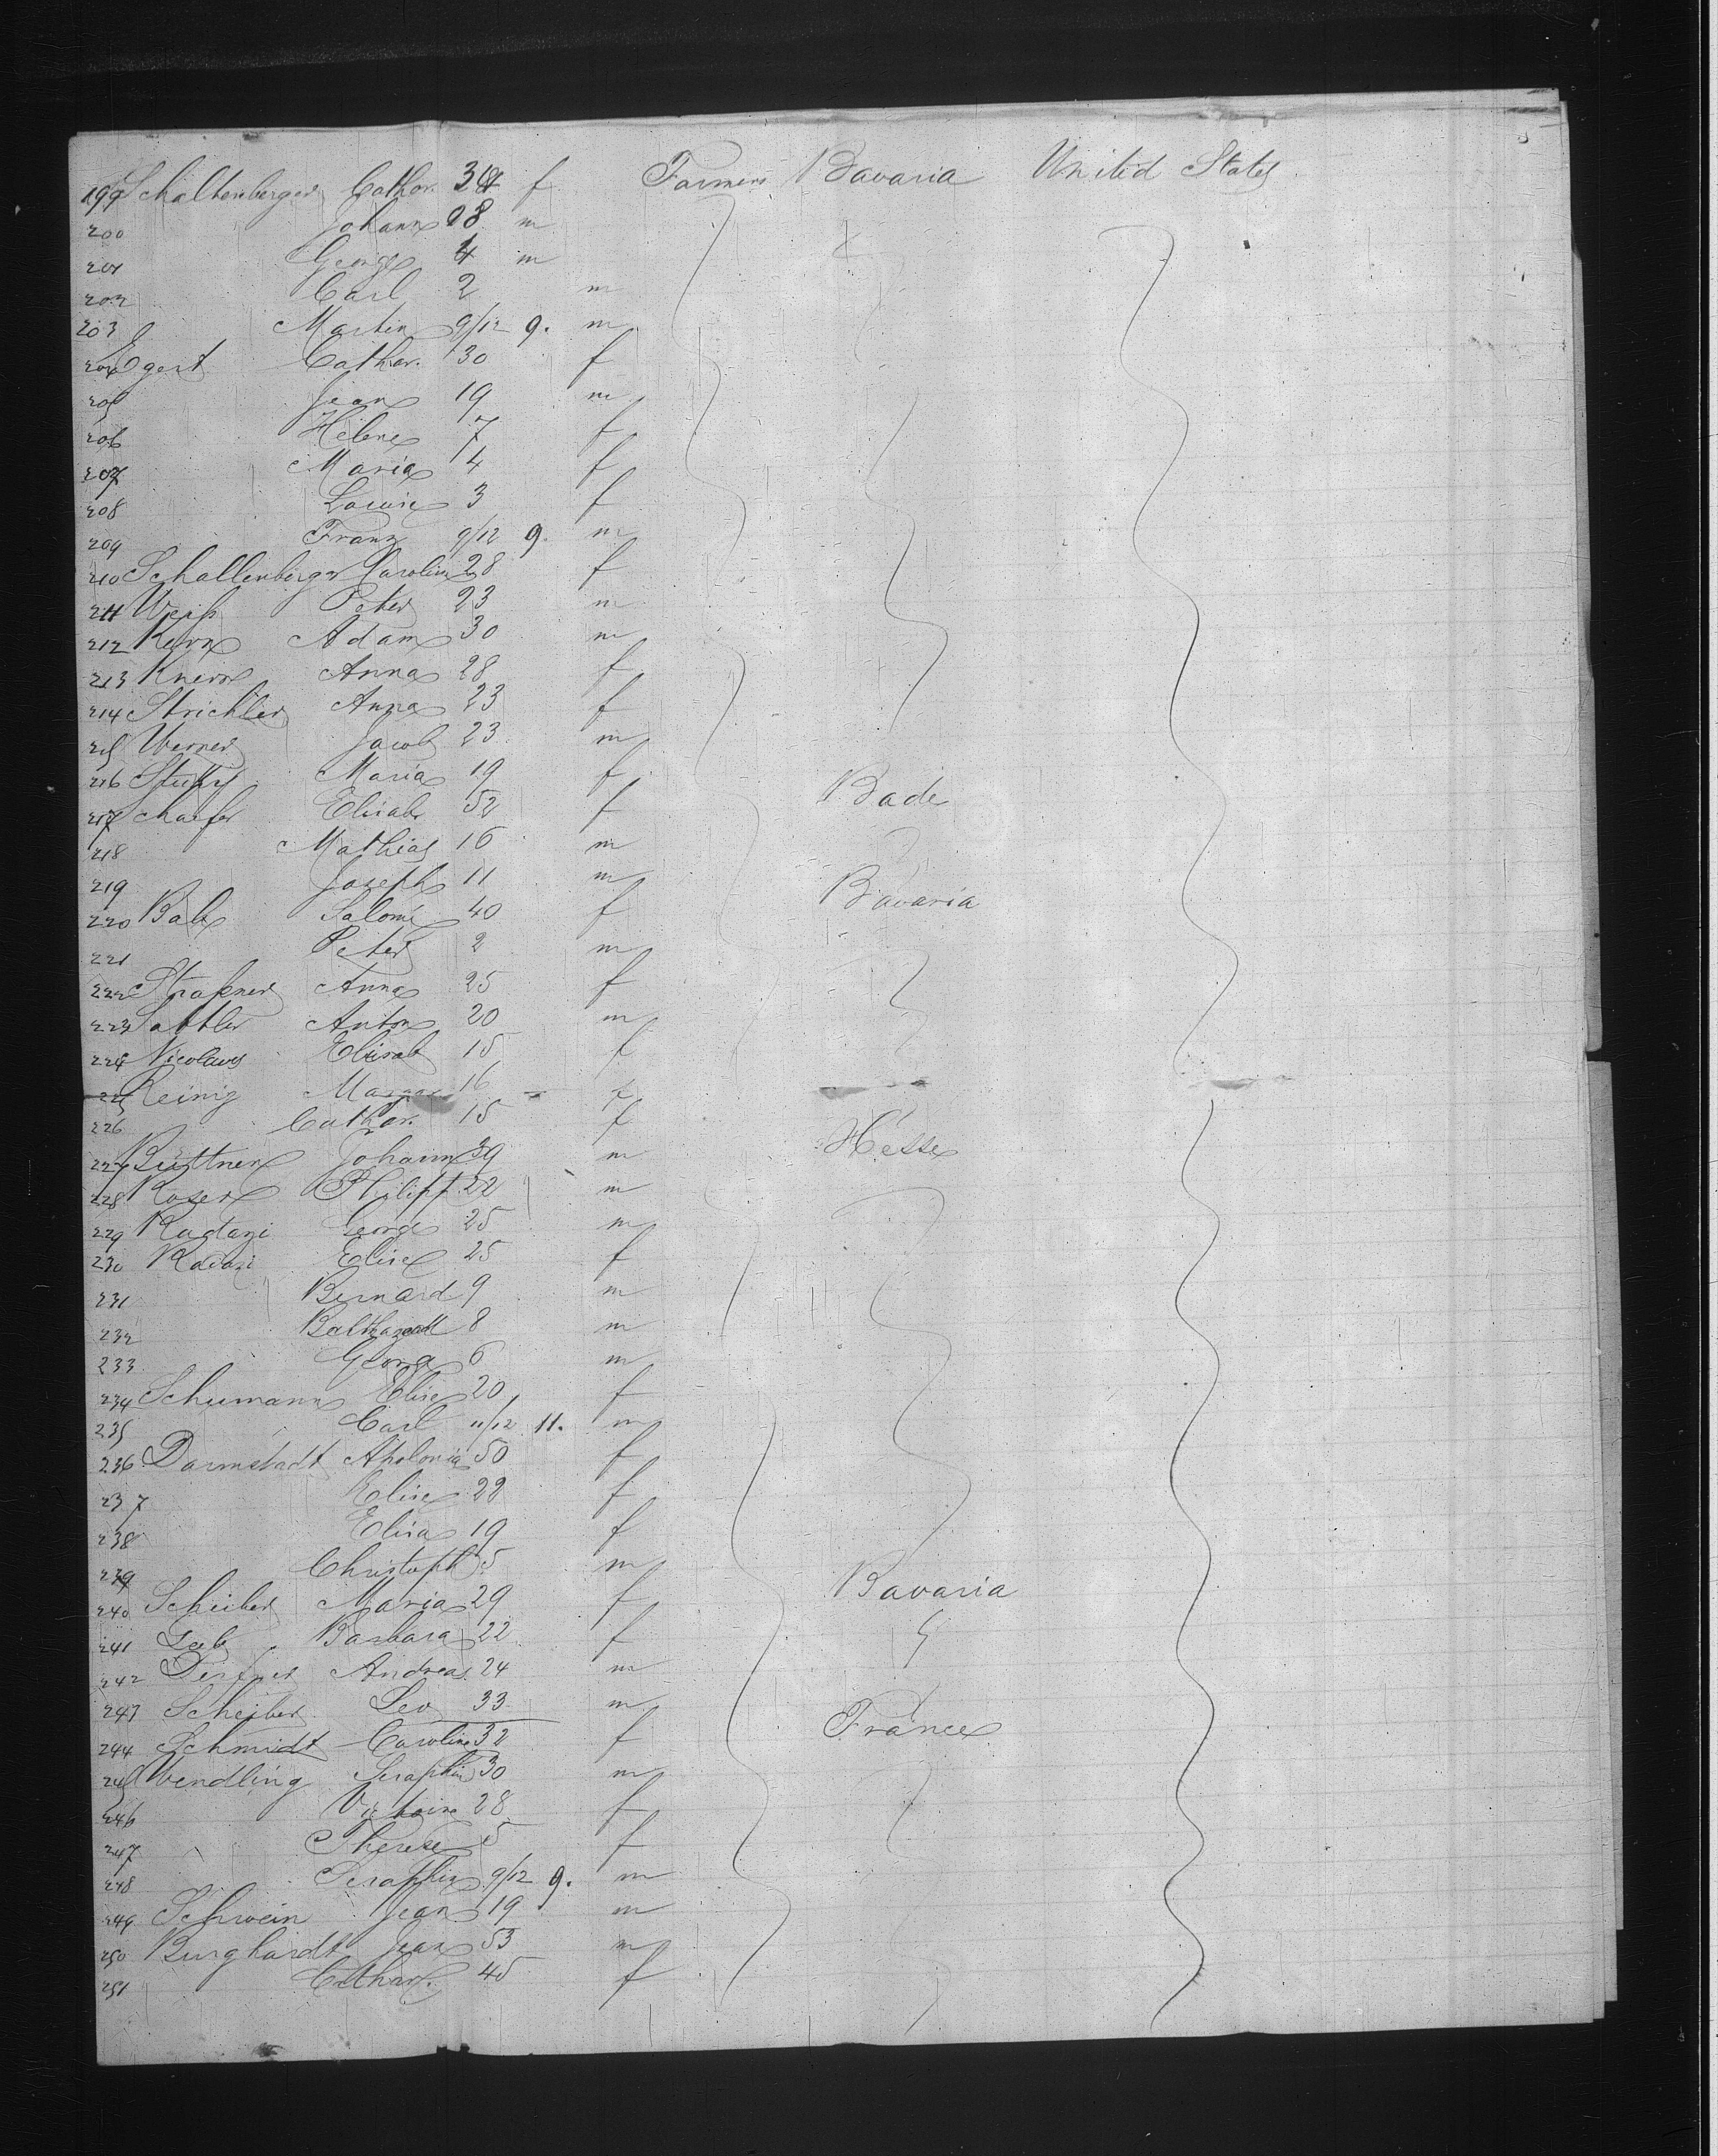 199 Schallenberger Cathar. 34 f Farmers Bavaria United States
200 Johann 18 m
201 George 4 m
202 Carl 2 m
203 Martin 9/12 9. m
204 Egert Cathar. 30 f
205 Jean 19 m
206 Hélène 7 f
207 Maria 4 f
208 Louise 3 f
209 Franz 9/12 9. m
210 Schallenberger Caroline 28 f
211 Weiß Peter 23 m
212 Kern Adam 30 m
213 Knerr Anna 28 f
214 Strickler Anna 23 f
215 Werner Jacob 23 m
216 Maria 19 f Bade
217 Schaefer Elisab 52 f
218 Mathias 16 m
219 Joseph 11 m Bavaria
220 Salomé 40 f
221 Peter 2 m
222 Straßner Anna 25 f
223 Sattler Anton 20 m
224 Nicolaus Elisab 15 f
225 Reinig Margar 16 f
226 Cathar. 15 f
227 Büttner Johann 39 m Hesse
228 Roser Philipp 22 m
229 George 25 m
230 Elise 25 f
231 Bernard 9 m
232 8 m
233 George 6 m
234 Schumann Elise 20 f
235 Carl 11/12 11. m
236 Darmstadt Apolonia 50 f
237 Elise 22 f
238 Elisa 19 f
239 Christoph 5 m
240 Scheiber Maria 29 f Bavaria
241 Barbara 22 f
242 Andreas 24 m
243 Scheiber Leo 33 m
244 Schmidt Caroline 32 f France
245 Wendling Seraphin 30 m
246 Victoire 28 f
247 Therese 5 f
248 Seraphin 9/12 9. m
249 Schwein Jean 19 m
250 Burghardt Jean 53 m
251 Cathar. 45 f